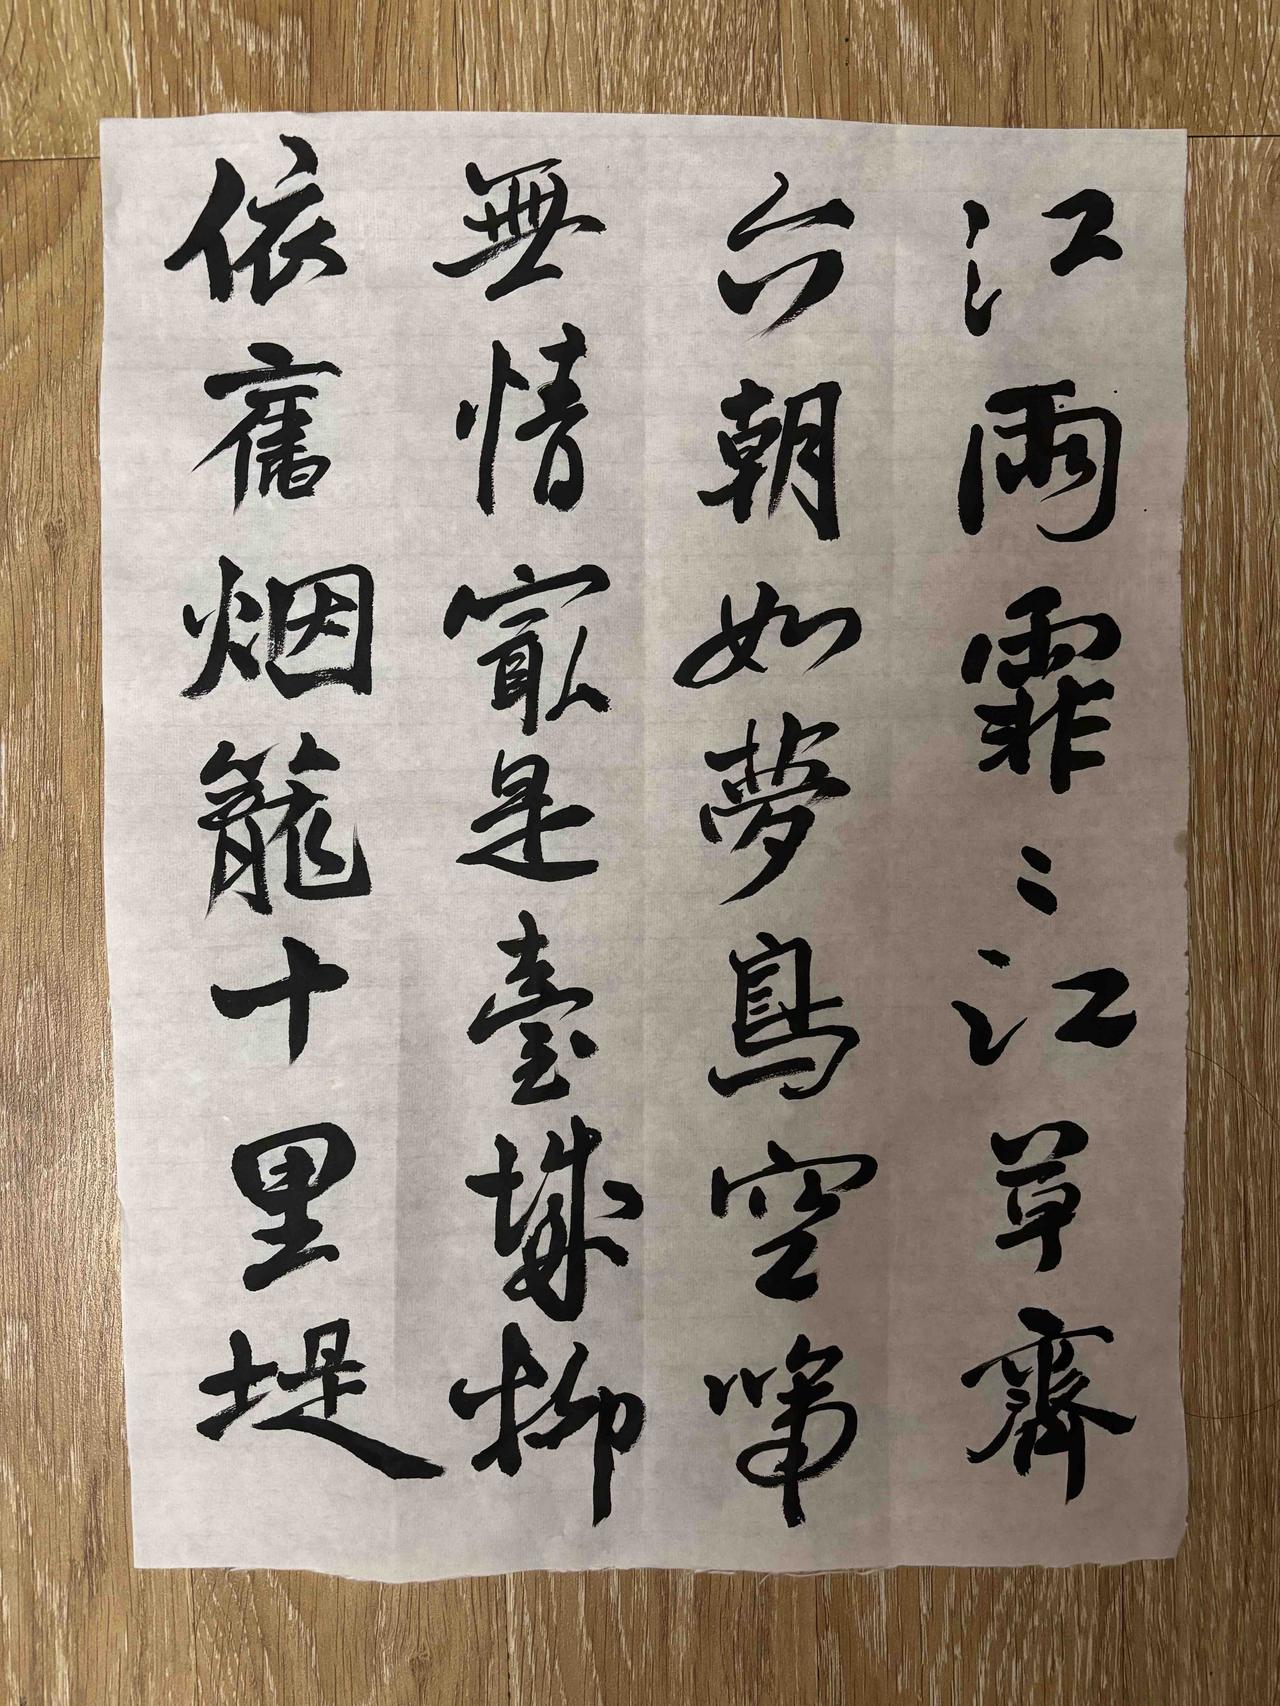 江雨霏〻江草齊
六朝如夢鳥空啼
無情㝡是臺城柳
依舊烟籠十里堤